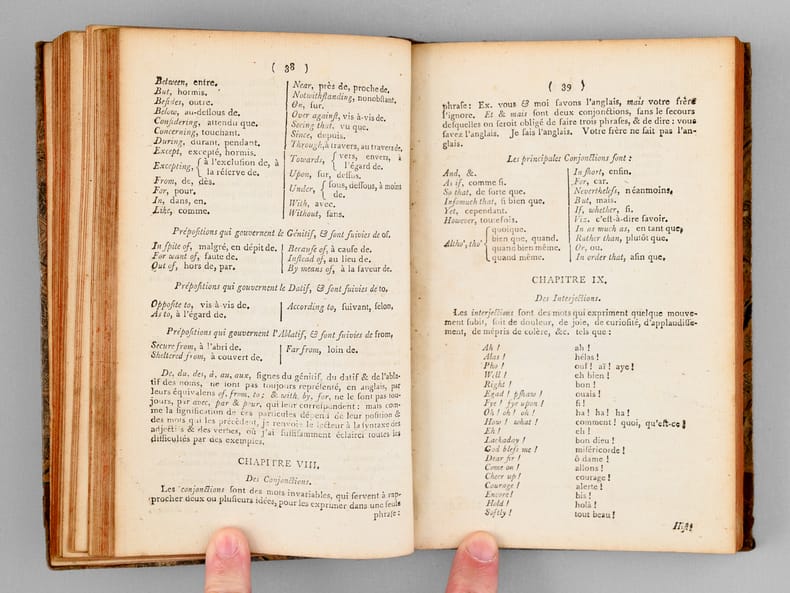 ( 38 )
Between, entre.
But, hormis.
Beſides, outre.
Below, au-deſſous de.
Conſidering, attendu que.
Concerning, touchant.
During, durant, pendant.
Except, excepté, hormis.
Excepting, { à l'excluſion de, à
la réſerve de.
From, de, dès.
For, pour.
In, dans, en.
Like, comme.
Near, près de, proche de.
Notwithſtanding, nonobſtant.
On, ſur.
Over againſt, vis-à-vis de.
Seeing that, vu que.
Since, depuis.
Through, à travers, au travers de.
Towards, { vers, envers, à
l'égard de.
Upon, ſur, deſſus.
Under, { ſous, deſſous, à moins
de.
With, avec.
Without, ſans.
Prépoſitions qui gouvernent le Génitif, & ſont ſuivies de of.
In ſpite of, malgré, en dépit de.
For want of, faute de.
Out of, hors de, par.
Becauſe of, à cauſe de.
Inſtead of, au lieu de.
By means of, à la faveur de.
Prépoſitions qui gouvernent le Datif, & ſont ſuivies de to.
Oppoſite to, vis-à-vis de.
As to, à l'égard de.
According to, ſuivant, ſelon.
Prépoſitions qui gouvernent l'Ablatif, & ſont ſuivies de from,
Secure from, à l'abri de.
Sheltered from, à couvert de.
Far from, loin de.
De, du, des, à, au, aux, ſignes du génitif, du datif & de l'abla-
tif des noms, ne ſont pas toujours repréſenté, en anglais, par
leurs équivalens of, from, to; & with, by, for, ne le ſont pas tou-
jours, par avec, par & pour, qui leur correſpondent: mais com-
me la ſignification de ces particules dépend de leur poſition &
des mots qui les précèdent, je renvoie le lecteur à la ſyntaxe des
adjectifs & des verbes, où j'ai ſuffiſamment éclairci toutes les
difficultés par des exemples.
CHAPITRE VIII.
Des Conjonctions.
Les conjonctions ſont des mots invariables, qui ſervent à rap-
procher deux ou pluſieurs idées, pour les exprimer dans une ſeule
phraſe:
( 39 )
phraſe: Ex. vous & moi ſavons l'anglais, mais votre frère
l'ignore. Et & mais ſont deux conjonctions, ſans le ſecours
deſquelles on ſeroit obligé de faire trois phraſes, & de dire: vous
ſavez l'anglais. Je ſais l'anglais. Votre frère ne ſait pas l'an-
glais.
Les principales Conjonctions ſont:
And, &.
As if, comme ſi.
So that, de ſorte que.
Inſomuch that, ſi bien que.
Yet, cependant.
However, toutefois.
Altho', tho' { quoique.
bien que, quand.
quand bien même.
quand même.
In ſhort, enfin.
For, car.
Nevertheleſs, néanmoins,
But, mais.
If, whether, ſi.
Viz. c'eſt-à-dire ſavoir.
In as much as, en tant que,
Rather than, plutôt que.
Or, ou.
In order that, afin que,
CHAPITRE IX.
Des Interjections.
Les interjections ſont des mots qui expriment quelque mouve-
ment ſubit, ſoit de douleur, de joie, de curioſité, d'applaudiſſe-
ment, de mépris de colère, &c. tels que:
Ah! ah!
Alas! hélas!
Pho! ouf! aï! aye!
Well! eh bien!
Right! bon!
Egad! pſhaw! ouais!
Fye! fye upon! ſi!
Oh! oh! oh! ha! ha! ha!
How! what! comment! quoi, qu'eſt-ce!
Eh! eh!
Lackaday! bon dieu!
God bleſs me! miſéricorde!
Dear ſir! ô dame!
Come on! allons!
Cheer up! courage!
Courage! alerte!
Encore! bis!
Hold! holà!
Softly! tout beau!
Hiſt!